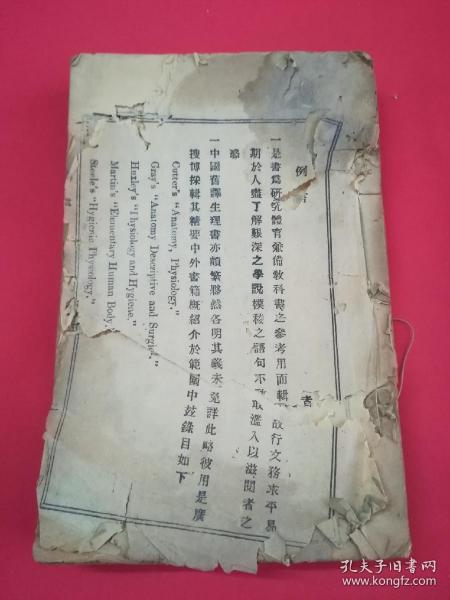 例言
一是書爲研究體育兼備敎科書之參考用而輯 故行文務求平易
期於人盡了解艱深之學說模稜之語句不 取濫入以滋閱者之
惑
一中國舊譯生理書亦頗繁夥然各明其義未免詳此略彼用是廣
搜博採輯其精要中外書籍槪紹介於範圍中玆錄目如下
Cutter's "Anatomy, Physiology."
Gray's "Anatomy Descriptive and Surgical."
Huxley's "Physiology and Hygiene."
Martin's "Elementary Human Body."
Steele's "Hygienic Physiology."
者
孔夫子旧书网
www.kongfz.com